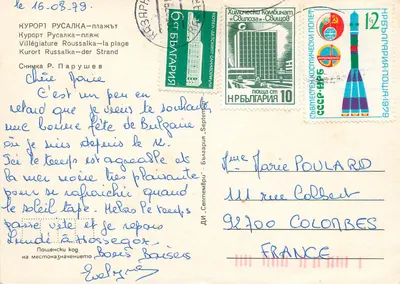 le 16.08.79.
КУРОРТ РУСАЛКА — плажът
Курорт Русалка — пляж
Villégiature Roussalka — la plage
Kurort Russalka — der Strand
Снимка Р. Парушев
Chère Marie
C'est un peu en
retard que je viens te souhaiter
une bonne fête de Bulgarie
où je suis depuis le
Ici le temps est agréable et
la mer noire très plaisante
pour se rafraichir quand
le soleil tape. Hélas le temps
passe vite et je repars
Lundi à Hossegor
Bons Baisers
Evelyne
Пощенски код
на местоназначението
ДИ „Септември"
България
6 ст
БЪЛГАРИЯ
Химически Комбинат
„Свилоза" - Свищов
ПОЩА СТ
НР БЪЛГАРИЯ 10
12
СССР-НРБ
БЪЛГАРИЯ ПОЩА 1979
Mme Marie POULARD
111 rue Colbert
92700 COLOMBES
FRANCE